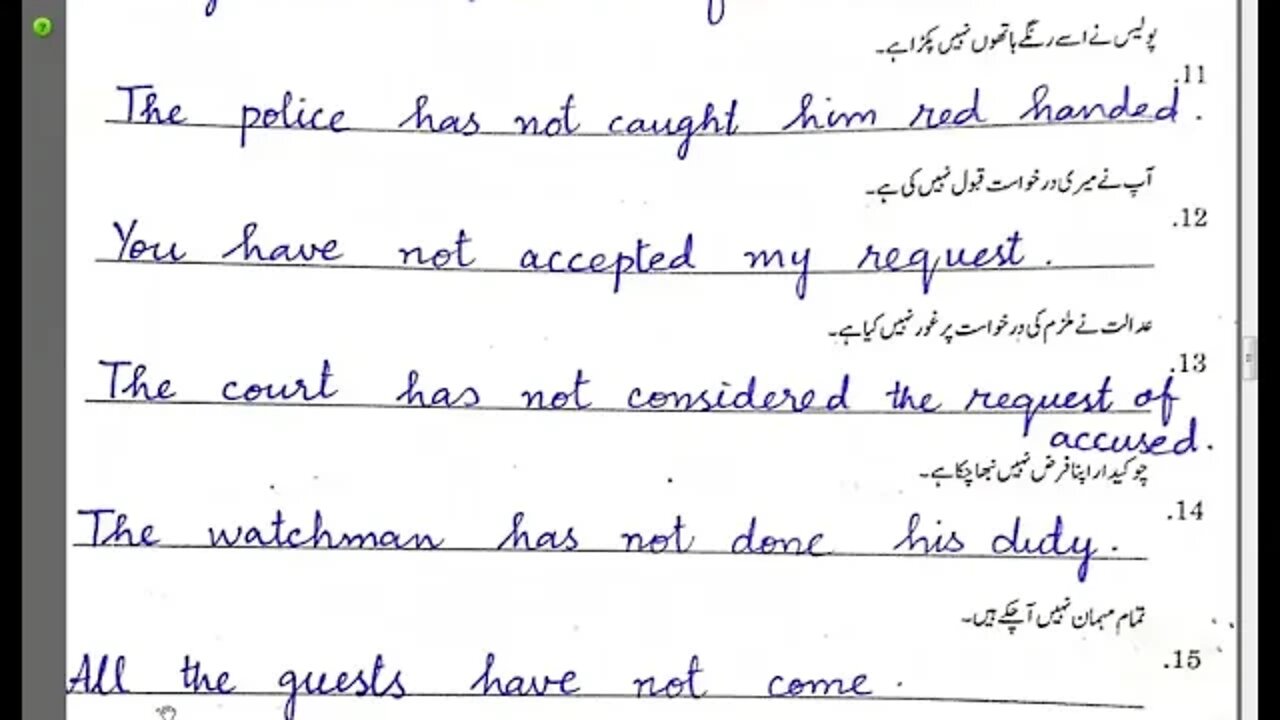 پولیس نے اسے رنگے ہاتھوں نہیں پکڑا ہے۔
.11
The police has not caught him red handed.
آپ نے میری درخواست قبول نہیں کی ہے۔
.12
You have not accepted my request.
عدالت نے ملزم کی درخواست پر غور نہیں کیا ہے۔
.13
The court has not considered the request of
accused.
چوکیدار اپنا فرض نہیں نبھا چکا ہے۔
.14
The watchman has not done his duty.
تمام مہمان نہیں آ چکے ہیں۔
.15
All the guests have not come.